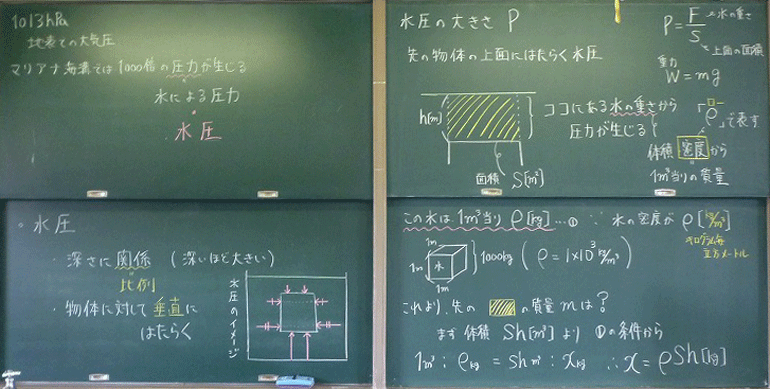 1013hPa
地表での大気圧
マリアナ海溝では1000倍の圧力が生じる
水による圧力
水圧
。水圧
・深さに関係 (深いほど大きい)
比例
・物体に対して垂直に
はたらく
水圧のイメージ
水圧の大きさ P
P = F/S
水の重さ
上面の面積
先の物体の上面にはたらく水圧
重力
W = mg
h[m]
ココにある水の重さから
圧力が生じる
「ρ」で表す
体積 密度から
1m³当りの質量
面積 S[m²]
この水は1m³当り ρ[kg]…① ∵ 水の密度が ρ[kg/m³]
キログラム毎
立方メートル
1m
1m
水
1m
1000kg (ρ = 1×10³kg/m³)
これより、先の の質量mは?
まず 体積 Sh[m³] より ①の条件から
1m³ : ρkg = Shm³ : xkg ∴x = ρSh[kg]